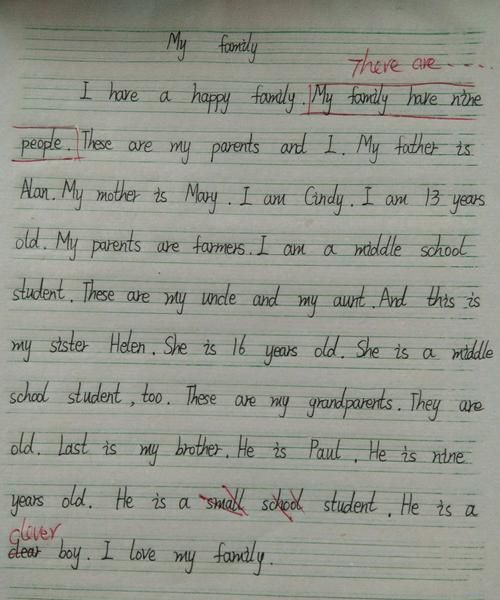 My family
There are....
I have a happy family. My family have nine
people. These are my parents and I. My father is
Alan. My mother is Mary. I am Cindy. I am 13 years
old. My parents are farmers. I am a middle school
student. These are my uncle and my aunt. And this is
my sister Helen. She is 16 years old. She is a middle
school student, too. These are my grandparents. They are
old. Last is my brother. He is Paul. He is nine
years old. He is a small school student. He is a
cliver
clear boy. I love my family.